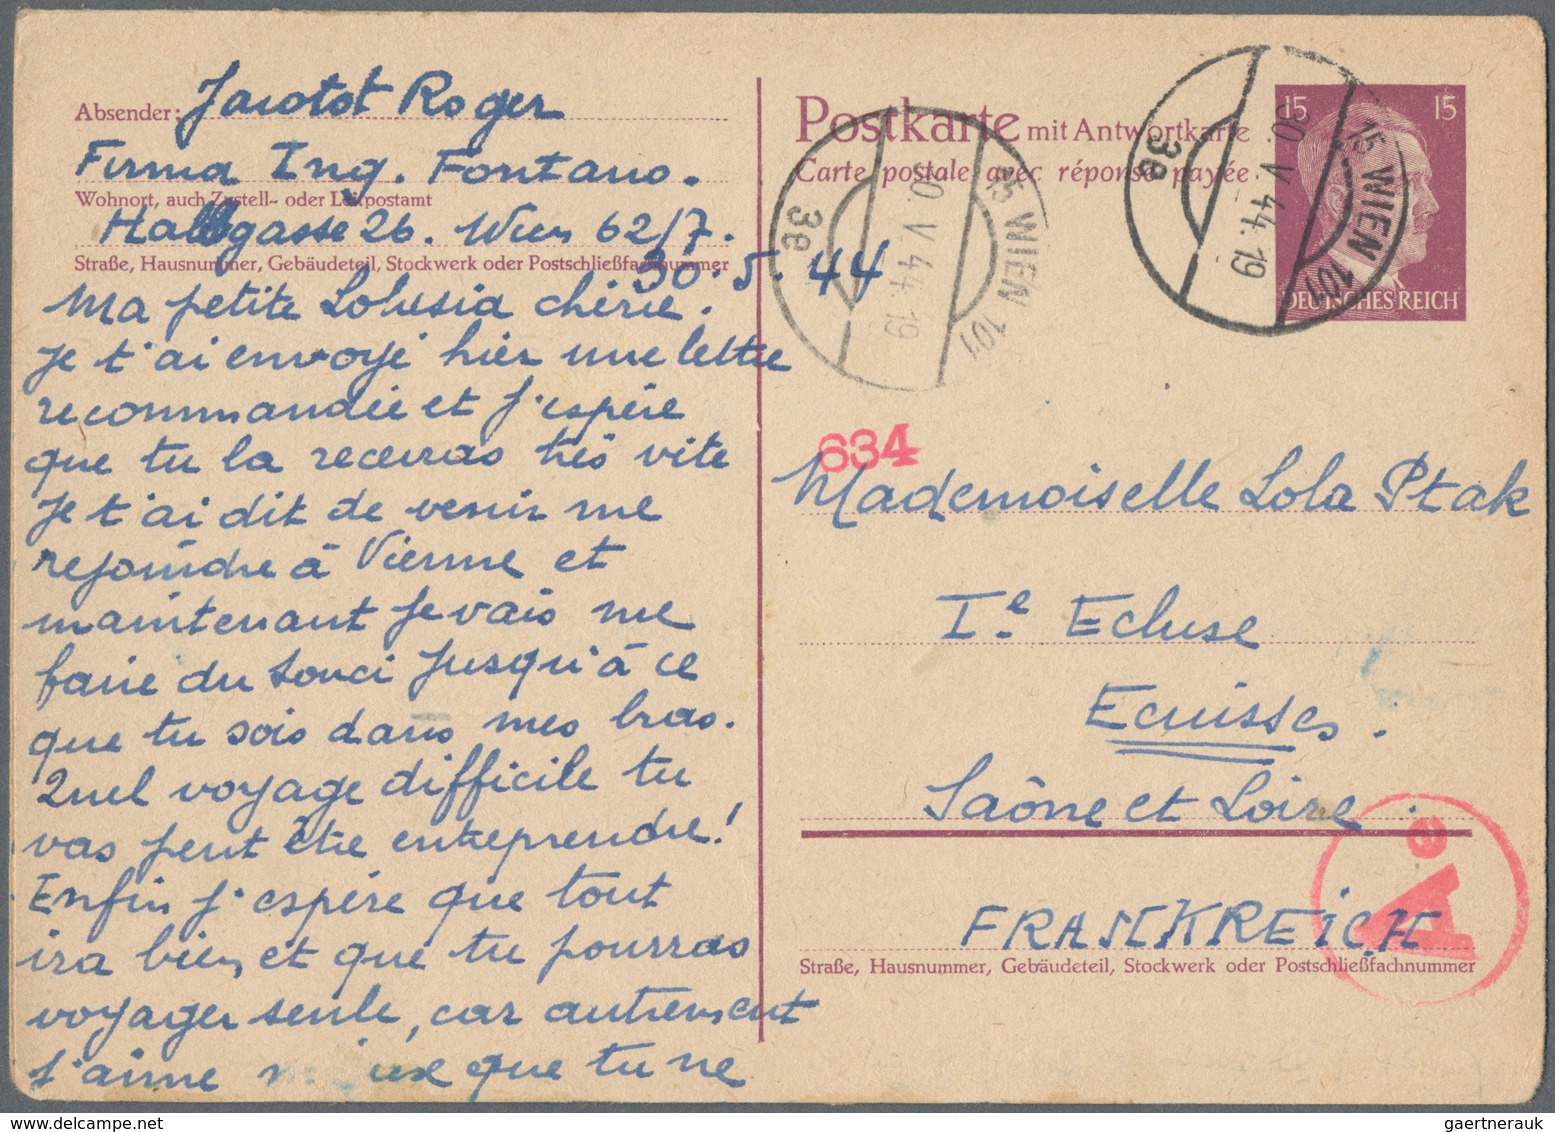 Absender: Jarotot Roger
Firma Ing. Fontano.
Wohnort, auch Zustell- oder Leitpostamt
Hallgasse 26. Wien 62/7.
Straße, Hausnummer, Gebäudeteil, Stockwerk oder Postschließfachnummer
30.5.44
Ma petite Lolusia chérie.
Je t'ai envoyé hier une lettre
recommandée et j'espère
que tu la recevras très vite
Je t'ai dit de venir me
rejoindre à Vienne et
maintenant je vais me
faire du souci jusqu'à ce
que tu sois dans mes bras.
Quel voyage difficile tu
vas peut être entreprendre!
Enfin j'espère que tout
ira bien et que tu pourras
voyager seule, car autrement
j'aime mieux que tu ne
Postkarte mit Antwortkarte
Carte postale avec réponse payée
15 WIEN 101
30. V. 44. 19
3e
15 WIEN 101
30. V. 44. 19
3e
15 15
DEUTSCHES REICH
634
Mademoiselle Lola Ptak
Ie Ecluse
Ecuisses.
Saône et Loire.
FRANKREICH
Straße, Hausnummer, Gebäudeteil, Stockwerk oder Postschließfachnummer
A e
gaertnerauk @ delcampe.net